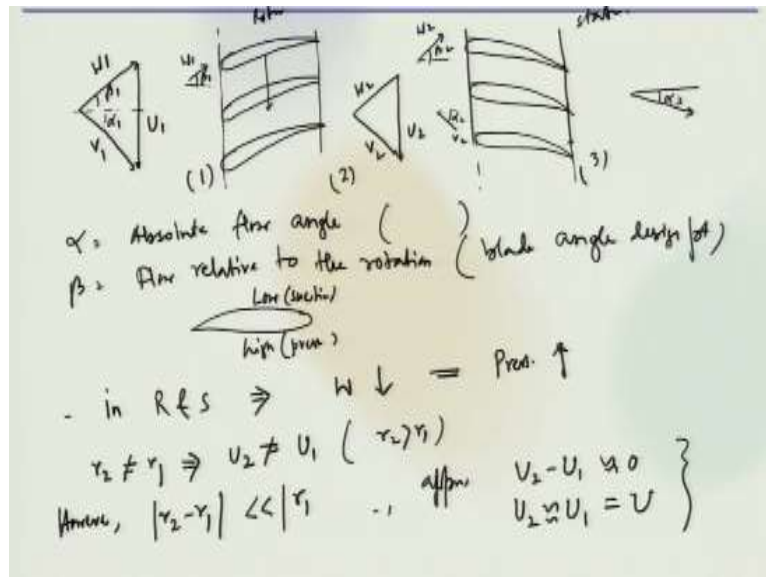 Rotor W2 stator
W1 β1 α1 V1 U1 W1 β1 W2 U2 V2 β2 α2 V2 α3
(1) (2) (3)
α = Absolute flow angle ( )
β = Flow relative to the rotation ( blade angle design pt)
Low (suction)
high (press.)
- in R & S ⇒ W ↓ = Press. ↑
r2 ≠ r1 ⇒ U2 ≠ U1 ( r2 > r1 )
However, |r2 - r1| << |r1 ∴, appr. U2 - U1 ≈ 0
U2 ≈ U1 = U }